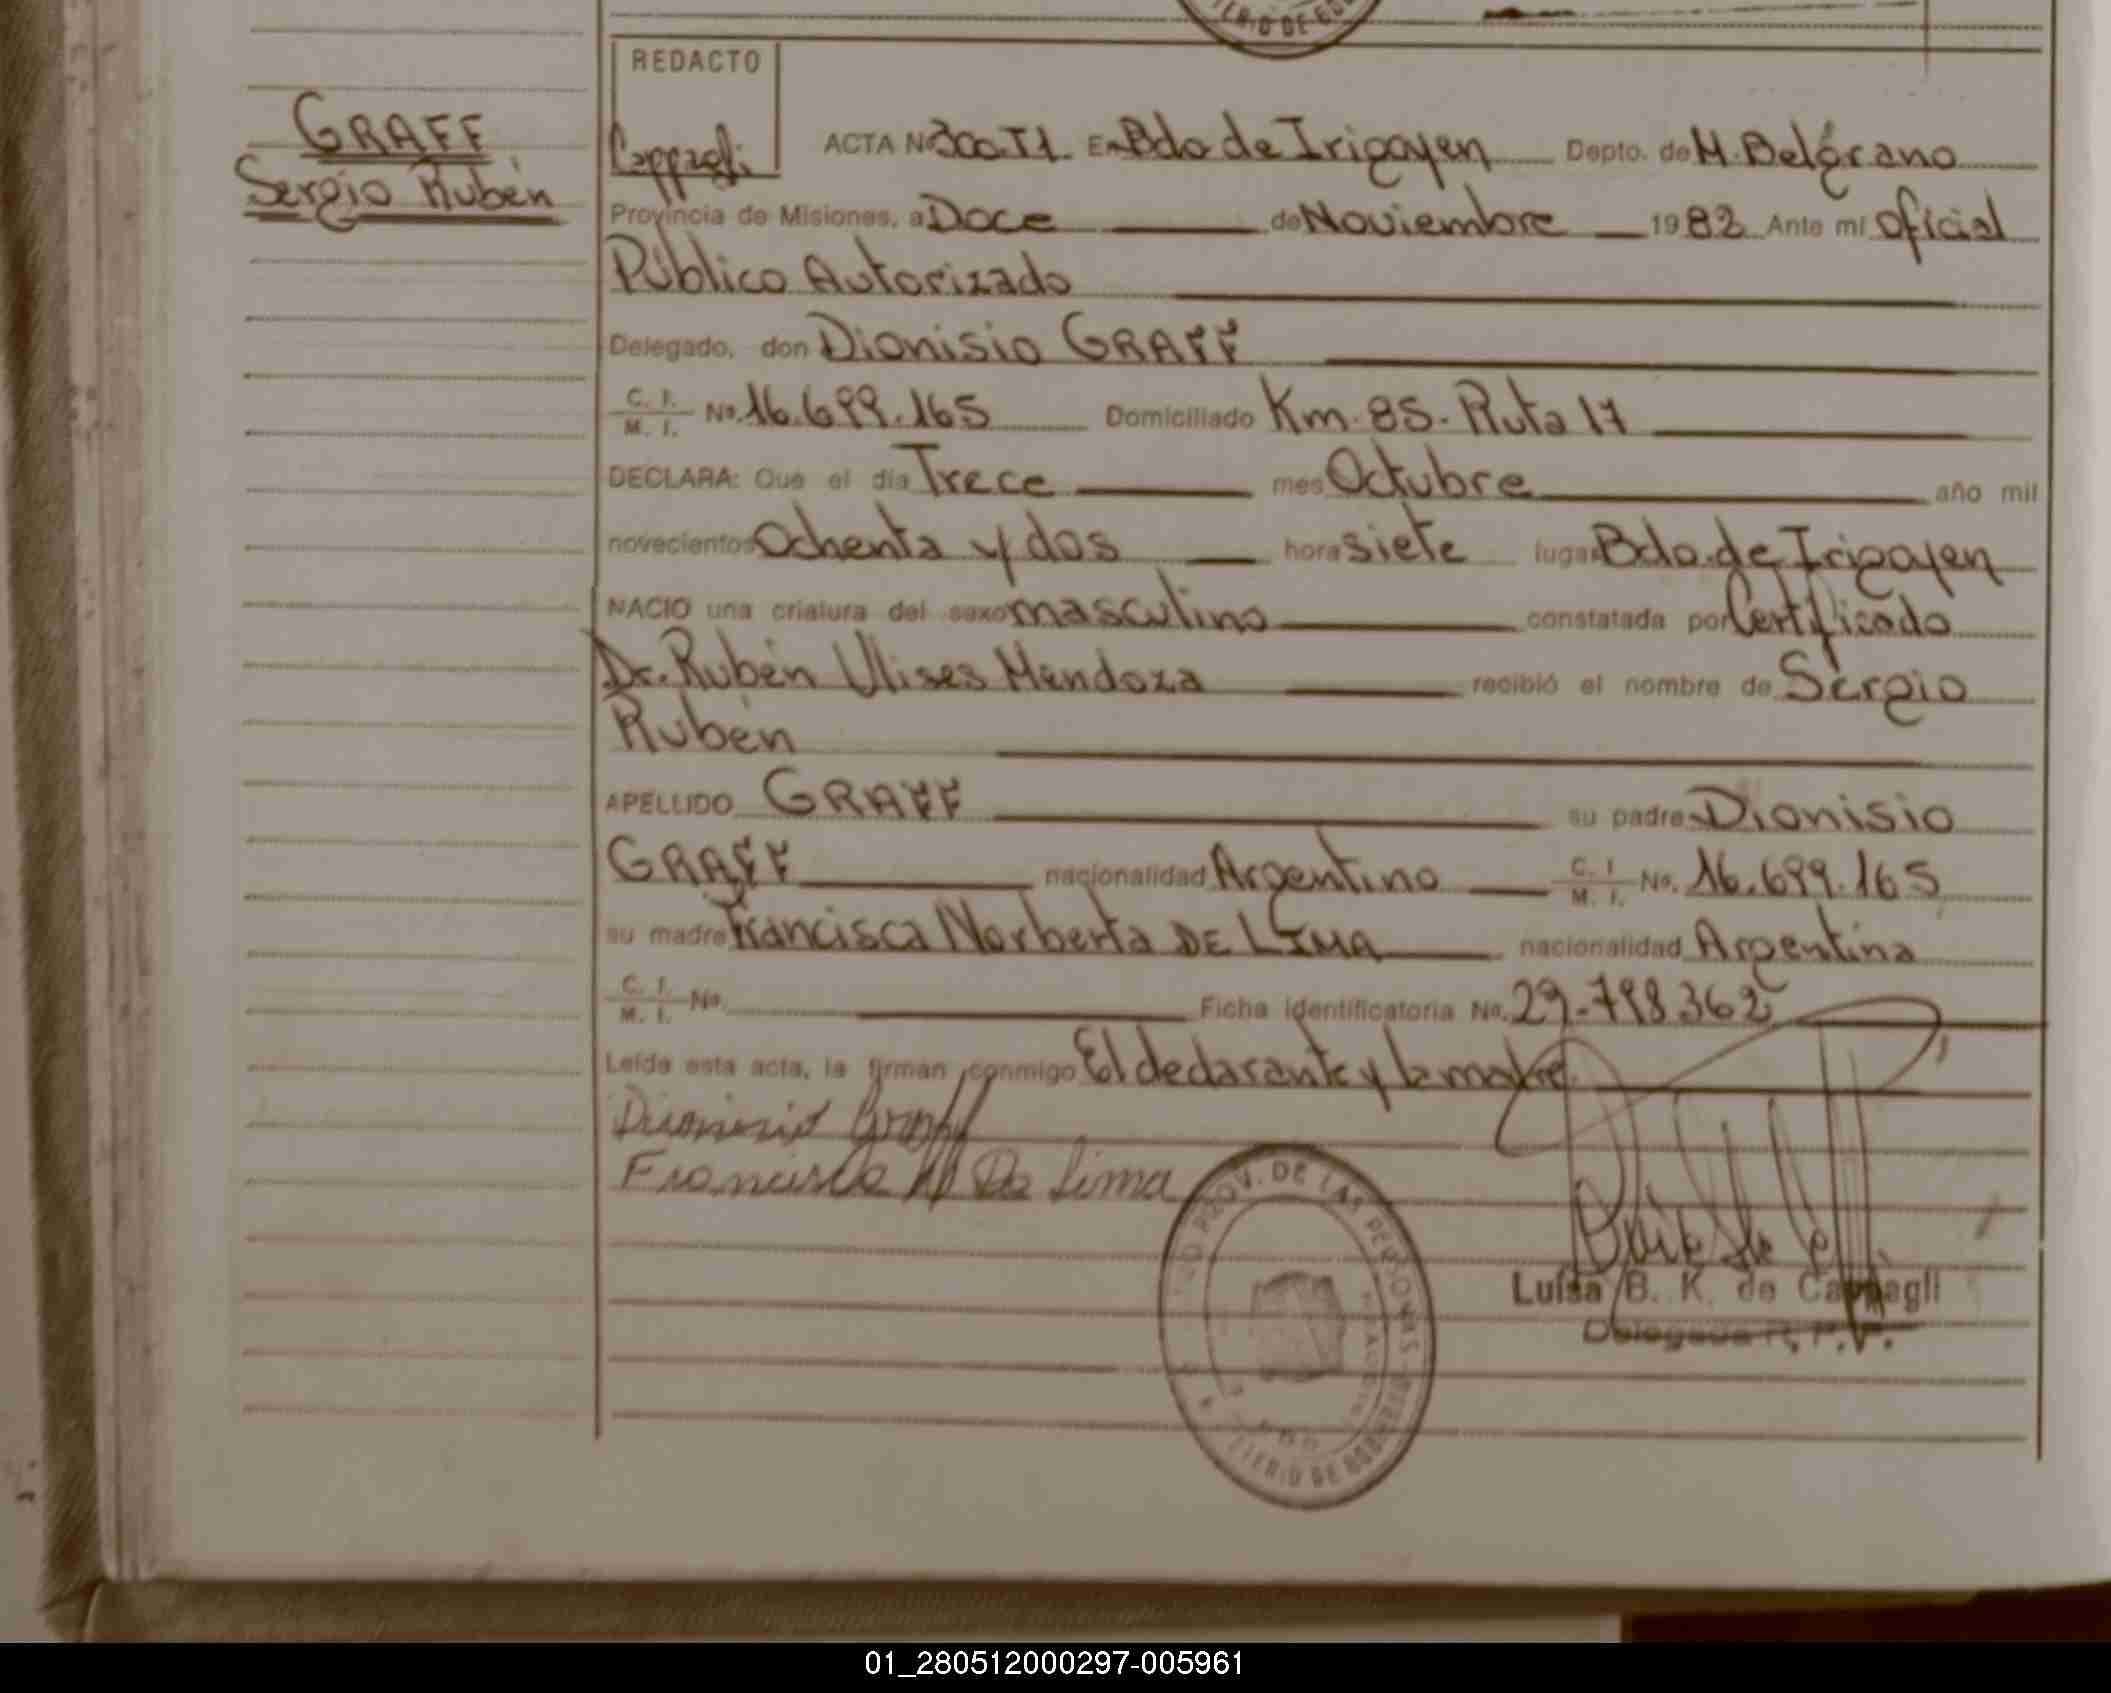 TERIO DE GOB
REDACTO
Cappagli
GRAFF
Sergio Rubén
ACTA Nº 300. T1 En Bdo de Irigoyen Depto. de M. Belgrano
Provincia de Misiones, a Doce de Noviembre 1982 Ante mí Oficial
Público Autorizado
Delegado, don Dionisio GRAFF
C. I.
M. I. No. 16.699.165 Domiciliado Km. 85. Ruta 17
DECLARA: Que el día Trece mes Octubre año mil
novecientos Ochenta y dos hora siete lugar Bdo. de Irigoyen
NACIO una criatura del sexo masculino constatada por Certificado
Dr. Rubén Ulises Mendoza recibió el nombre de Sergio
Rubén
APELLIDO GRAFF su padre Dionisio
GRAFF nacionalidad Argentino C. I. M. I. No. 16.699.165
su madre Francisca Norberta DE LIMA nacionalidad Argentina
C. I.
M. I. No. Ficha identificatoria No. 29.798362
Leída esta acta, la firman conmigo El declarante y la madre.
Dionisio Graff
Francisca N De Lima
PROV. DE LAS PERSONAS
TERIO DE GOBIER
Luisa B. K. de Cappagli
Delegada R. P. P.
01_280512000297-005961